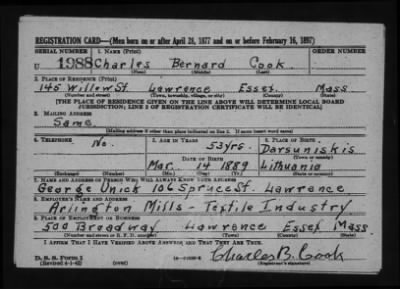 REGISTRATION CARD—(Men born on or after April 28, 1877 and on or before February 16, 1897)
SERIAL NUMBER 1. NAME (Print) ORDER NUMBER
U 1988 Charles Bernard Cook
(First) (Middle) (Last)
2. PLACE OF RESIDENCE (Print)
145 Willow St. Lawrence Essex Mass
(Number and street) (Town, township, village, or city) (County) (State)
[THE PLACE OF RESIDENCE GIVEN ON THE LINE ABOVE WILL DETERMINE LOCAL BOARD
JURISDICTION; LINE 2 OF REGISTRATION CERTIFICATE WILL BE IDENTICAL]
3. MAILING ADDRESS
Same
[Mailing address if other than place indicated on line 2. If same insert word same]
4. TELEPHONE 5. AGE IN YEARS 6. PLACE OF BIRTH
No. 53 yrs. Darsuniskis
DATE OF BIRTH (Town or county)
Mar. 14 1889 Lithuania
(Mo.) (Day) (Yr.) (State or country)
7. NAME AND ADDRESS OF PERSON WHO WILL ALWAYS KNOW YOUR ADDRESS
George Unick 106 Spruce St. Lawrence
8. EMPLOYER'S NAME AND ADDRESS
Arlington Mills - Textile Industry
9. PLACE OF EMPLOYMENT OR BUSINESS
500 Broadway Lawrence Essex Mass.
(Number and street or R. F. D. number) (Town) (County) (State)
I AFFIRM THAT I HAVE VERIFIED ABOVE ANSWERS AND THAT THEY ARE TRUE.
D. S. S. Form 1
(Revised 4-1-42) (over)
Charles B. Cook
(Registrant's signature)